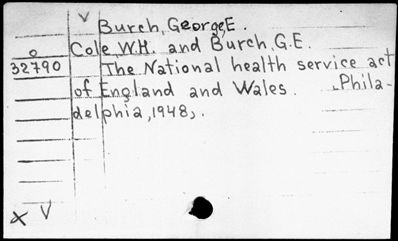 v
Burch, George, E.
o Cole, W.H. and Burch, G.E.
32790 The National health service act
of England and Wales. Phila-
delphia, 1948,.
x V